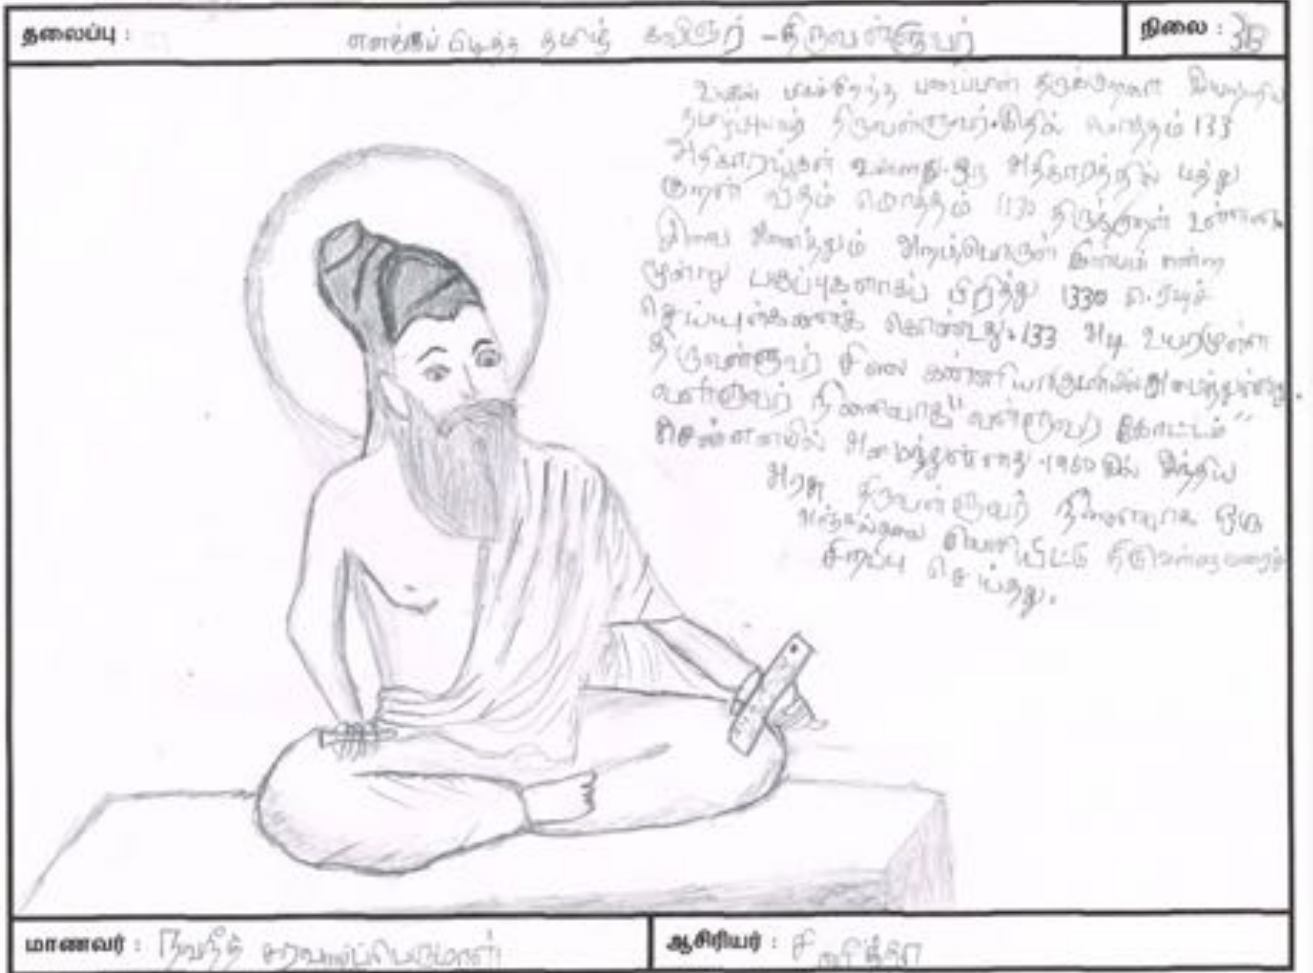 தலைப்பு : எனக்குப் பிடித்த தமிழ் கவிஞர் - திருவள்ளுவர்
நிலை : 3B
உலகின் மிகச்சிறந்த படைப்பான திருக்குறளை இயற்றிய
திருவள்ளுவர். இதில் மொத்தம் 133
அதிகாரங்கள் உள்ளது. ஒரு அதிகாரத்தில் பத்து
குறள் வீதம் மொத்தம் 1330 திருக்குறள் உள்ளன.
இவை அனைத்தும் அறம் பொருள் இன்பம் என்ற
மூன்று பகுப்புகளாகப் பிரித்து 1330
செய்யுள்களைக் கொண்டது. 133 அடி உயரமுள்ள
திருவள்ளுவர் சிலை கன்னியாகுமரியில் அமைந்துள்ளது.
வள்ளுவர் நினைவாக "வள்ளுவர் கோட்டம்"
சென்னையில் அமைந்துள்ளது. 1960 இல் இந்திய
அரசு திருவள்ளுவர் நினைவாக ஒரு
அஞ்சல்தலை வெளியிட்டு திருவள்ளுவரைச்
சிறப்பு செய்தது.
மாணவர் : நவநீத்
ஆசிரியர் :